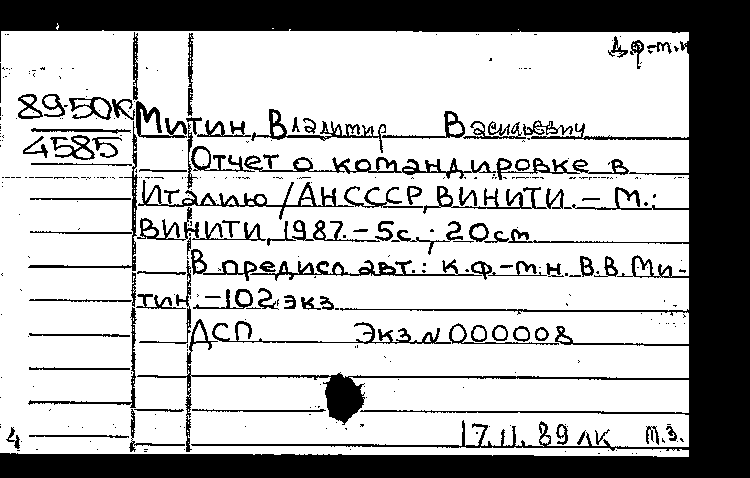 Д.ф-т.н
89-50К
4585
Митин, Владимир Васильевич
Отчет о командировке в
Италию / АН СССР, ВИНИТИ. – М.:
ВИНИТИ, 1987. – 5с.; 20 cm
В предисл авт.: к.ф.-т.н. В.В. Ми-
тин. – 102 экз
ДСП. Экз. N 000008
17.11.89 ЛК т.з.
4